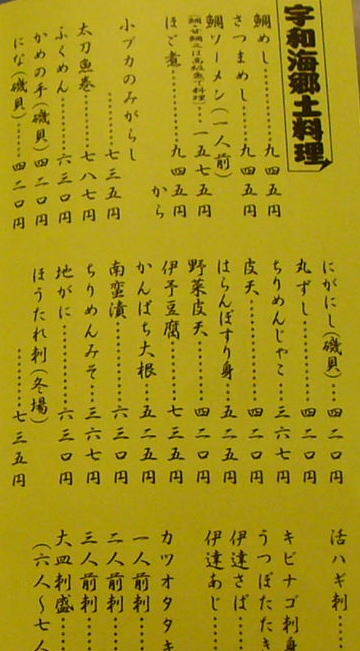 宇和海郷土料理
鯛めし…………九四五円
さつまめし………九四五円
鯛ソーメン(一人前)……一五七五円
ほご煮…………九四五円
から
小ブカのみがらし
……七三五円
太刀魚巻………七八七円
ふくめん………六三〇円
かめの手(磯貝)四二〇円
にな(磯貝)……四二〇円
にがにし(磯貝)…四二〇円
丸ずし…………四二〇円
ちりめんじゃこ…三六七円
皮天……………四二〇円
はらんぼすり身…五二五円
野菜皮天………四二〇円
伊予豆腐………七三五円
かんぱち大根…五二五円
南蛮漬…………六三〇円
ちりめんみそ…三六七円
地がに…………六三〇円
ほうたれ刺(冬場)
……………七三五円
活ハギ刺……
キビナゴ刺身
うつぼたたき
伊達さば……
伊達あじ……
カツオタタキ
一人前刺……
二人前刺……
三人前刺……
大皿刺盛……
(六人〜七人